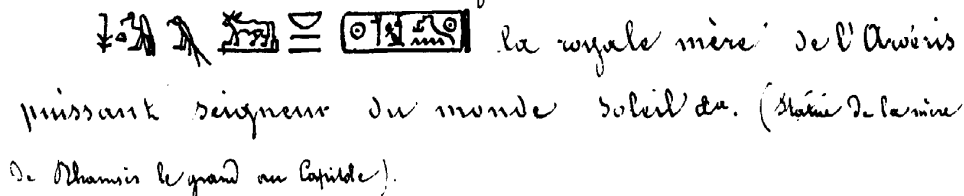 la royale mère de l'Aroéris
puissant seigneur du monde soleil &a. (Statue de la mère
de Rhamsès le grand au Capitole).